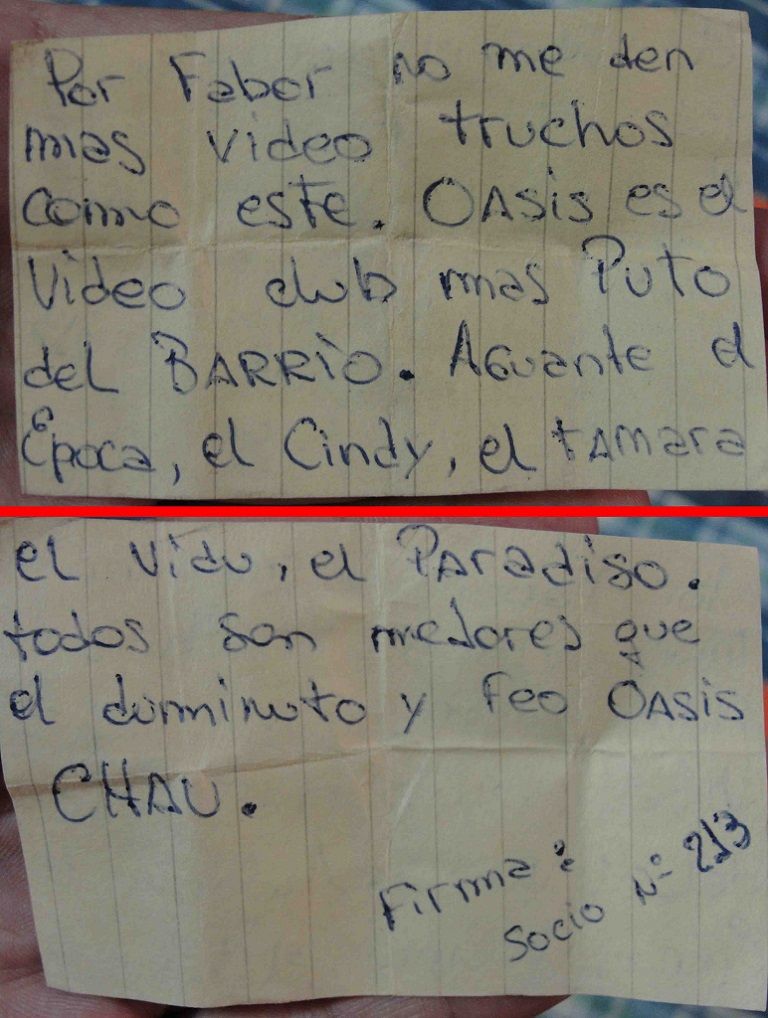 Por Fabor no me den
mas video truchos
como este. OASis es el
Video club mas Puto
del BARRiO. AGuante el
Época, el Cindy, el tAmara
el Vidu, el PAradiso.
todos son meJores que
el diminuto y feo OAsis
CHAU.
Firma:
Socio Nº 213